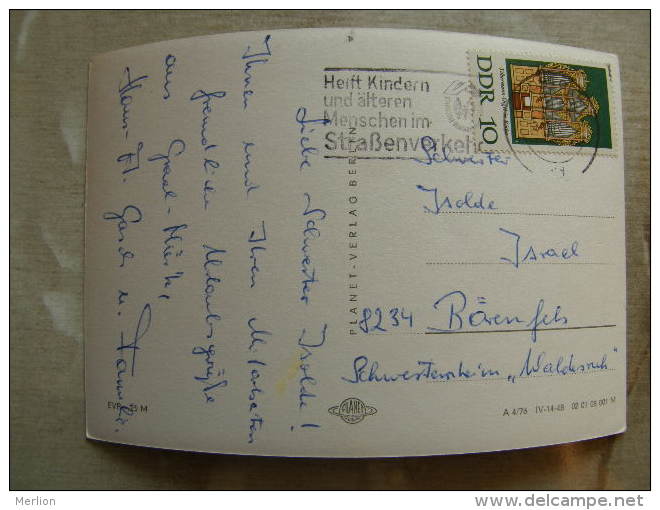 Liebe Schwester Isolde!
Ihnen und Ihren Mitarbeitern
freundliche Urlaubsgrüße
aus Graal-Müritz,
Hans-H. u. Familie.
PLANET-VERLAG BERLIN
Helft Kindern
und älteren
Menschen im
Straßenverkehr
DDR 10
Schwester
Isolde
Israel
8234 Bärenfels
Schwesternheim „Waldesruh“
EVP -,25 M
PLANET
A 4/76 IV-14-48 02 01 05 001 M
Merlion
delcampe.net